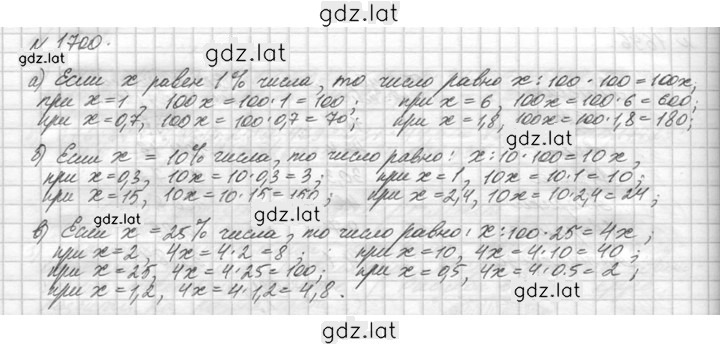 gdz.lat
N 1700.
gdz.lat
gdz.lat
а) Если x равен 1% числа, то число равно x:100·100=100x;
при x=1, 100x=100·1=100; при x=6, 100x=100·6=600;
при x=0,7, 100x=100·0,7=70; при x=1,8, 100x=100·1,8=180;
gdz.lat
б) Если x = 10% числа, то число равно: x:10·100=10x,
при x=0,3, 10x=10·0,3=3; при x=1, 10x=10·1=10;
при x=15, 10x=10·15=150; при x=2,4, 10x=10·2,4=24;
gdz.lat
gdz.lat
в) Если x =25% числа, то число равно: x:100·25=4x;
при x=2, 4x=4·2=8; при x=10, 4x=4·10=40;
при x=25, 4x=4·25=100; при x=0,5, 4x=4·0.5=2;
при x=1,2, 4x=4·1,2=4,8.
gdz.lat
gdz.lat